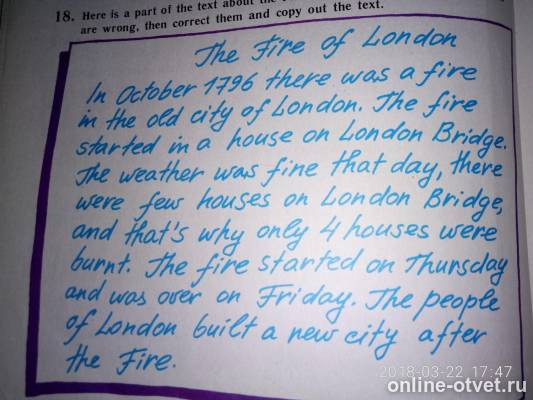 18. Here is a part of the text about the
are wrong, then correct them and copy out the text.
The Fire of London
In October 1796 there was a fire
in the old city of London. The fire
started in a house on London Bridge.
The weather was fine that day, there
were few houses on London Bridge,
and that's why only 4 houses were
burnt. The fire started on Thursday
and was over on Friday. The people
of London built a new city after
the Fire.
2018-03-22 17:47
online-otvet.ru